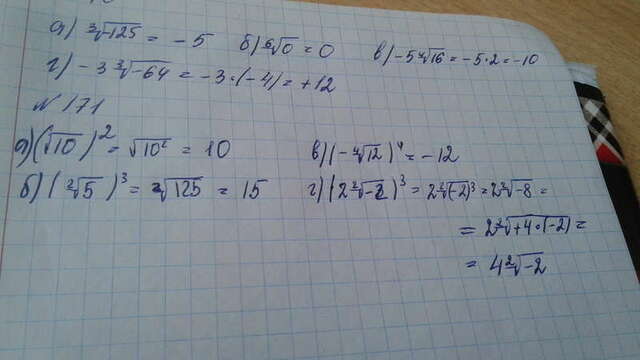 а) ∛-125 = -5 б) ⁶√0 = 0 в) -5 ⁴√16 = -5·2 = -10
г) -3 ∛-64 = -3·(-4) = +12
№ 171
а) (√10)² = √10² = 10 в) (-⁴√12)⁴ = -12
б) (∛5)³ = ∛125 = 15 г) (2 ∛-2)³ = 2 ∛(-2)³ = 2 ∛-8 =
= 2 ²√+4·(-2) =
= 4 ²√-2